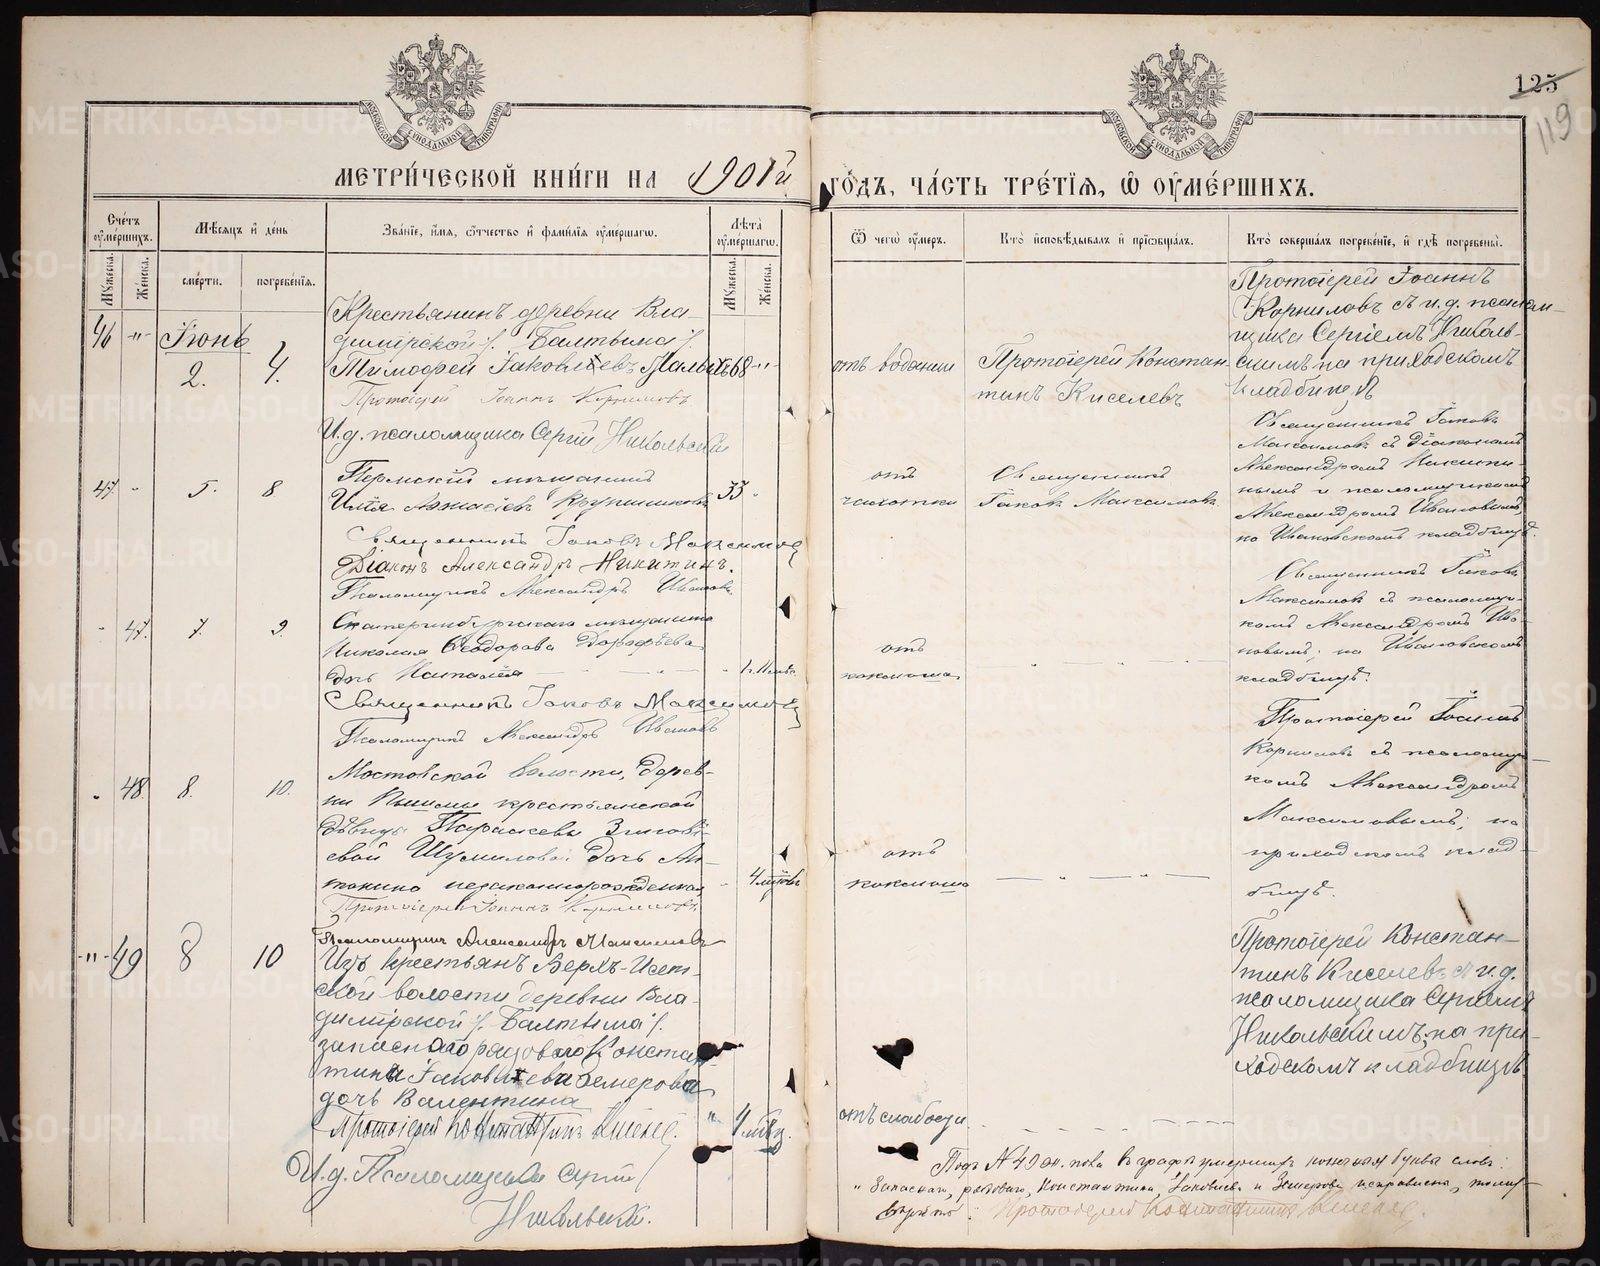 125
119
МЕТРИ́ЧЕСКОЙ КНИ́ГИ НА 1901й ГО́ДЪ, ЧА́СТЬ ТРЕ́ТЇѦ, Ѡ҆ ОУ҆МЕ́РШИХЪ.
Сче́тъ оу҆ме́ршихъ.
Мѣ́сѧцъ и҆ де́нь
Зва́нїе, и҆́мѧ, ѻ҆́тчество и҆ фами́лїѧ оу҆ме́ршагѡ.
Лѣ́та оу҆ме́ршагѡ.
Ѿ чегѡ̀ оу҆́меръ.
Кто̀ и҆сповѣ́дывалъ и҆ прїѡбща́лъ.
Кто̀ соверша́лъ погребе́нїе, и҆ гдѣ̀ погребены̀.
Мꙋ́жеска.
Же́нска.
сме́рти.
погребе́нїѧ.
Мꙋ́жеска.
Же́нска.
46 -"- Іюнь
2. 4.
Крестьянинъ деревни Вла-
димірской /. Балтыма /.
Тимофей Іаковлевъ 68 -"-
Протоіерей Іоаннъ Корниловъ
И.д. псаломщика Сергій Никольскій
отъ водянки
Протоіерей Констан-
тинъ Киселевъ
Протоіерей Іоаннъ
Корниловъ съ и.д. псалом-
щика Сергіемъ Николь-
скимъ на приходскомъ
кладбищѣ
47 " 5. 8
Пермскій мѣщанинъ
Илія 33 "
Священникъ Іаковъ Максимовъ
Діаконъ Александръ Никитинъ.
Псаломщикъ Александръ Ивановъ
отъ
чахотки
Священникъ
Іаковъ Максимовъ
Священникъ Іаковъ
Максимовъ съ Діакономъ
Александромъ Никити-
нымъ и псаломщикомъ
Александромъ Ивановымъ,
на Ивановскомъ кладбищѣ.
" 47. 7. 9.
Екатеринбургскаго мѣщанина
Николая Ѳеодорова Дорофѣева
дочь Наталія
Священникъ Іаковъ Максимовъ
Псаломщикъ Александръ Ивановъ
отъ
коклюша.
Священникъ Іаковъ
Максимовъ съ псаломщи-
комъ Александромъ Ива-
новымъ; на Ивановскомъ
кладбищѣ.
" 48. 8. 10.
Мостовской волости, дерев-
ни Пышмы крестьянской
дѣвицы Параскевы
Шумиловой дочь Ан-
тонина незаконнорожденная
4 мѣсяцовъ
Протоіерей Іоаннъ Корниловъ
Псаломщикъ Александръ Максимовъ
отъ
коклюша
Протоіерей Іоаннъ
Корниловъ съ псаломщи-
комъ Александромъ
Максимовымъ; на
приходскомъ клад-
бищѣ.
-"- 49 8 10
Изъ крестьянъ Верхъ-Исет-
ской волости деревни Вла-
димірской /. Балтыма /.
запаснаго рядоваго Констан-
тина Іаковлева Земерова
дочь Валентина
" 4 мѣсц.
Протоіерей Константинъ Киселевъ.
И.д. Псаломщика Сергій
Никольскій.
отъ слабости
Протоіерей Констан-
тинъ Киселевъ съ и.д.
псаломщика Сергіемъ
Никольскимъ; на при-
ходскомъ кладбищѣ
Подъ № 49 въ графѣ умершихъ буквы словъ:
" Запаснаго, рядоваго, Константина, Іаковлева и Земерова исправлено,
вѣрно: Протоіерей Константинъ Киселевъ.
METRIKI.GASO-URAL.RU